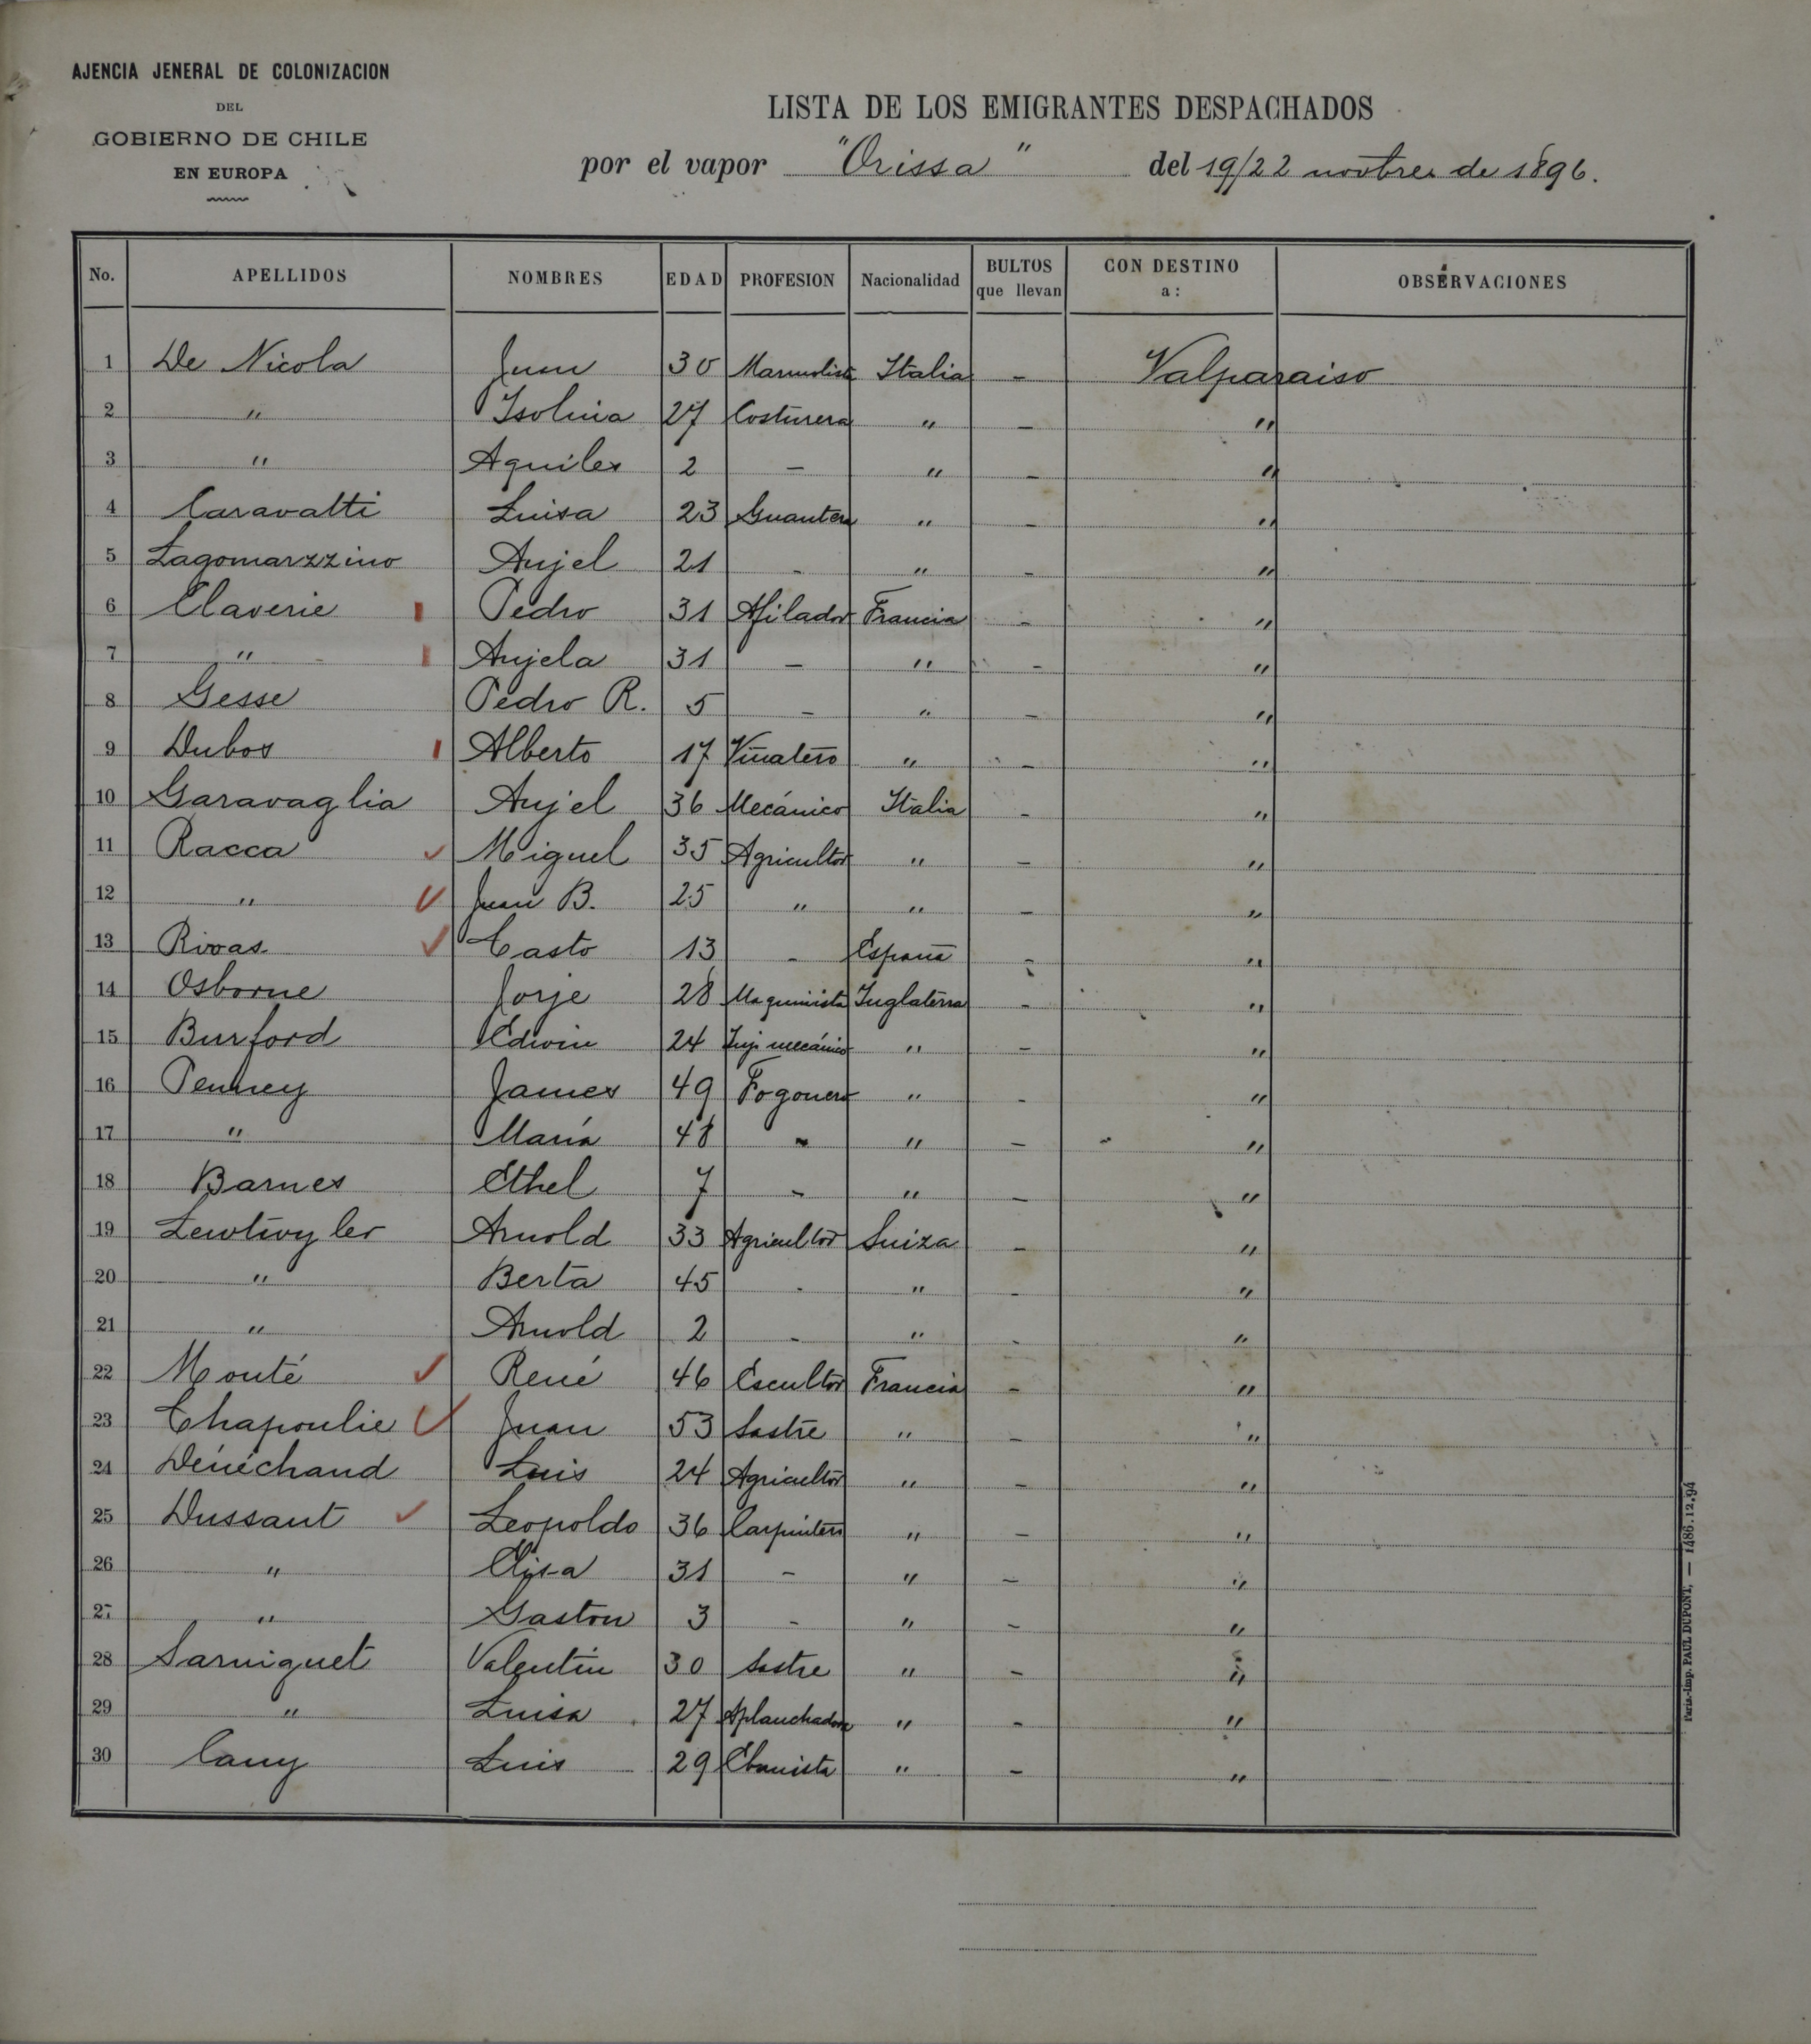 AJENCIA JENERAL DE COLONIZACION
DEL
GOBIERNO DE CHILE
EN EUROPA
LISTA DE LOS EMIGRANTES DESPACHADOS
por el vapor "Orissa" del 19/22 novbre de 1896.
No. APELLIDOS NOMBRES EDAD PROFESION Nacionalidad BULTOS que llevan CON DESTINO a: OBSERVACIONES
1 De Nicola Juan 30 Marmolista Italia - Valparaiso
2 " Isolina 27 Costurera " - "
3 " Aquiles 2 - " - "
4 Caravatti Luisa 23 Guantera " - "
5 Lagomarzzino Anjel 21 - " - "
6 Claverie Pedro 31 Afilador Francia - "
7 " Anjela 31 - " - "
8 Gesse Pedro R. 5 - " - "
9 Dubos Alberto 17 Viñatero " - "
10 Garavaglia Anjel 36 Mecánico Italia - "
11 Racca Miguel 35 Agricultor " - "
12 " Juan B. 25 " " - "
13 Rivas Casto 13 - España - "
14 Osborne Jorje 28 Maquinista Inglaterra - "
15 Burford Edwin 24 Inj. mecánico " - "
16 Penney James 49 Fogonero " - "
17 " María 48 - " - "
18 Barnes Ethel 7 - " - "
19 Arnold 33 Agricultor Suiza - "
20 " Berta 45 - " - "
21 " Arnold 2 - " - "
22 Monté René 46 Escultor Francia - "
23 Chapoulie Juan 53 Sastre " - "
24 Dénéchaud Luis 24 Agricultor " - "
25 Dussaut Leopoldo 36 Carpintero " - "
26 " Elisa 31 - " - "
27 " Gaston 3 - " - "
28 Sarniguet Valentin 30 Sastre " - "
29 " Luisa 27 Aplanchadora " - "
30 Cany Luis 29 Ebanista " - "
Paris.-Imp. PAUL DUPONT, — 1486.12.94